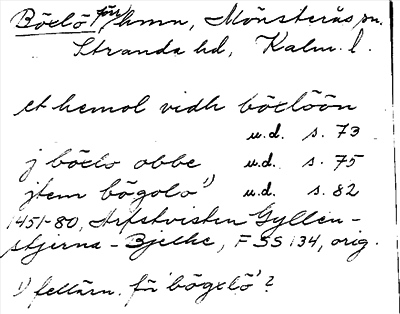 Böelö förr/hmn, Mönsterås sn.
Stranda hd, Kalm. l.
et hemol vidh böelöön
u.d. s. 73
j böelo obbe u.d. s. 75
jtem bögolo ¹) u.d. s. 82
1451-80, Arfstvisten Gyllen-
stjerna-Bjelke, FSS 134, orig.
¹) fellärn. för 'bögelö'?